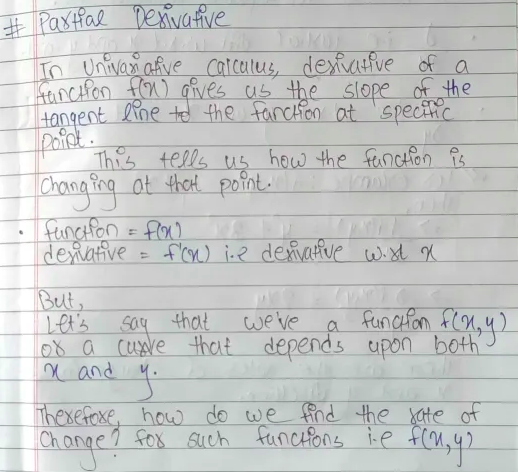 # Partial Derivative
In Univariative calculus, derivative of a
function f(x) gives us the slope of the
tangent line to the function at specific
point.
This tells us how the function is
changing at that point.
• function = f(x)
derivative = f'(x) i.e derivative w.rt x
But,
Let's say that we've a function f(x,y)
or a curve that depends upon both
x and y.
Therefore, how do we find the rate of
change? for such functions i.e f(x,y)